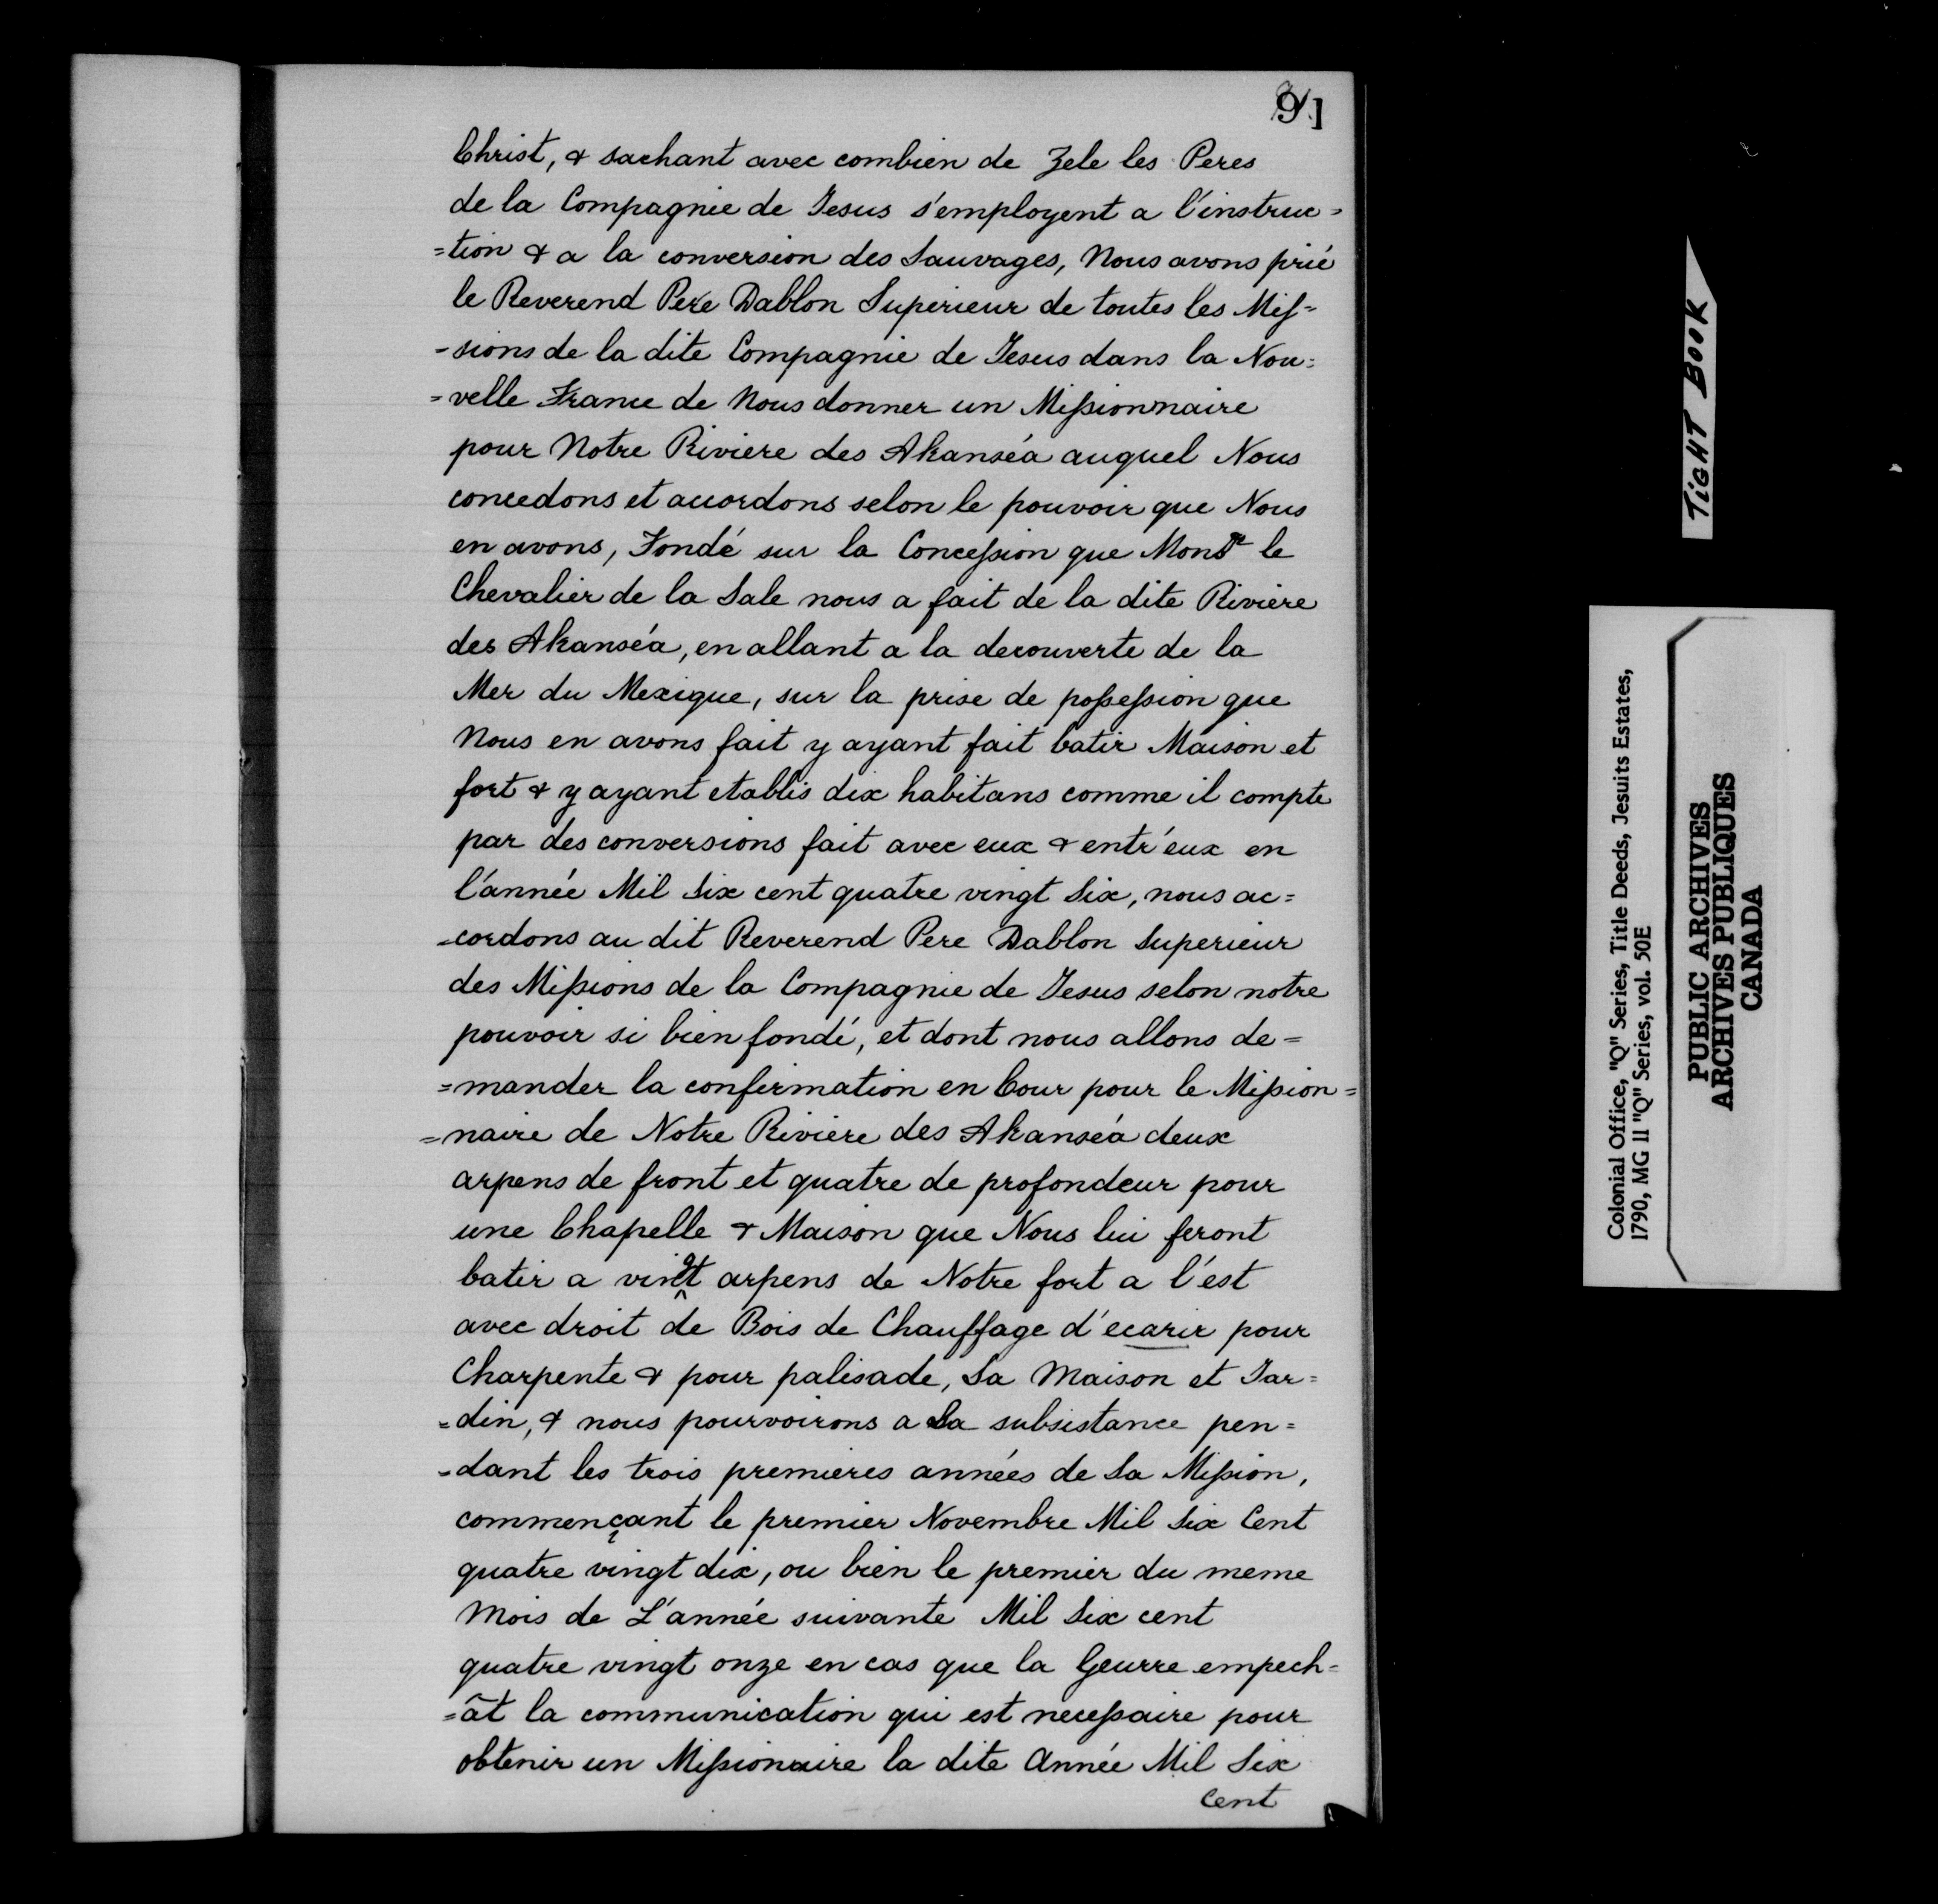 91
Christ, & sachant avec combien de Zele les Peres
de la Compagnie de Jesus s'employent a l'instruc=
=tion & a la conversion des Sauvages, Nous avons prié
le Reverend Pere Dablon Superieur de toutes les Mis=
=sions de la dite Compagnie de Jesus dans la Nou=
=velle France de Nous donner un Missionnaire
pour Notre Riviere des Akanséa auquel Nous
concedons et accordons selon le pouvoir que Nous
en avons, Fondé sur la Concession que Monsr le
Chevalier de la Sale nous a fait de la dite Riviere
des Akanséa, en allant a la decouverte de la
Mer du Mexique, sur la prise de possession que
Nous en avons fait y ayant fait batir Maison et
fort & y ayant etablis dix habitans comme il compte
par des conversions fait avec eux & entr'eux en
l'année Mil Six cent quatre vingt Six, nous ac=
=cordons au dit Reverend Pere Dablon Superieur
des Missions de la Compagnie de Jesus selon notre
pouvoir si bien fondé, et dont nous allons de=
=mander la confirmation en Cour pour le Mission=
=naire de Notre Riviere des Akanséa deux
arpens de front et quatre de profondeur pour
une Chapelle & Maison que Nous lui feront
batir a vingt arpens de Notre fort a l'est
avec droit de Bois de Chauffage d'ecarir pour
Charpente & pour palisade, Sa Maison et Jar=
=din, & nous pourvoirons a Sa subsistance pen=
=dant les trois premieres années de Sa Mission,
commençant le premier Novembre Mil Six Cent
quatre vingt dix, ou bien le premier du meme
Mois de L'année suivante Mil Six cent
quatre vingt onze en cas que la Geurre empech=
=ât la communication qui est necessaire pour
obtenir un Missionaire la dite Année Mil Six
Cent
TIGHT BOOK
Colonial Office, "Q" Series, Title Deeds, Jesuits Estates,
1790, MG 11 "Q" Series, vol. 50E
PUBLIC ARCHIVES
ARCHIVES PUBLIQUES
CANADA